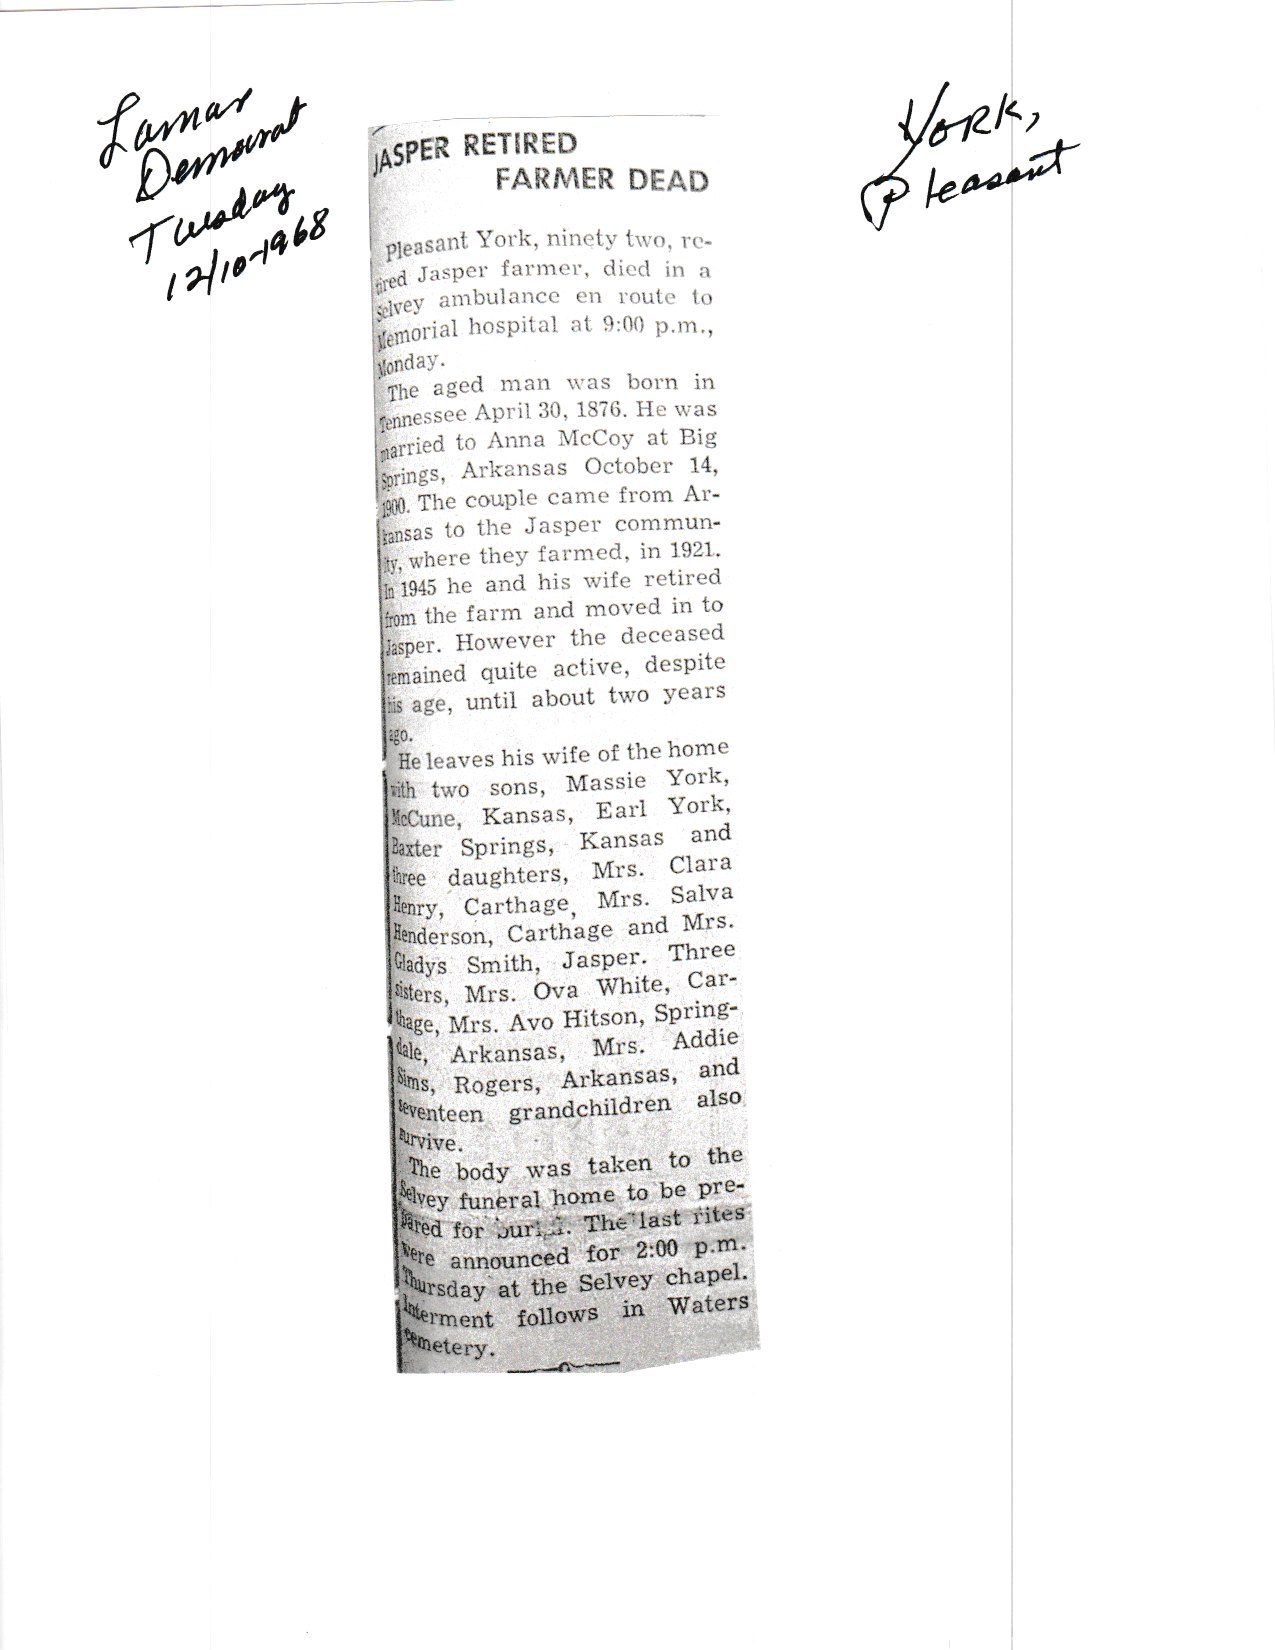 Lamar
Democrat
Tuesday
12/10-1968
York,
Pleasant
JASPER RETIRED
FARMER DEAD
Pleasant York, ninety two, re-
tired Jasper farmer, died in a
Selvey ambulance en route to
Memorial hospital at 9:00 p.m.,
Monday.
The aged man was born in
Tennessee April 30, 1876. He was
married to Anna McCoy at Big
Springs, Arkansas October 14,
1900. The couple came from Ar-
kansas to the Jasper commun-
ity, where they farmed, in 1921.
In 1945 he and his wife retired
from the farm and moved in to
Jasper. However the deceased
remained quite active, despite
his age, until about two years
ago.
He leaves his wife of the home
with two sons, Massie York,
McCune, Kansas, Earl York,
Baxter Springs, Kansas and
three daughters, Mrs. Clara
Henry, Carthage, Mrs. Salva
Henderson, Carthage and Mrs.
Gladys Smith, Jasper. Three
sisters, Mrs. Ova White, Car-
thage, Mrs. Avo Hitson, Spring-
dale, Arkansas, Mrs. Addie
Sims, Rogers, Arkansas, and
seventeen grandchildren also
survive.
The body was taken to the
Selvey funeral home to be pre-
pared for burial. The last rites
were announced for 2:00 p.m.
Thursday at the Selvey chapel.
Interment follows in Waters
cemetery.